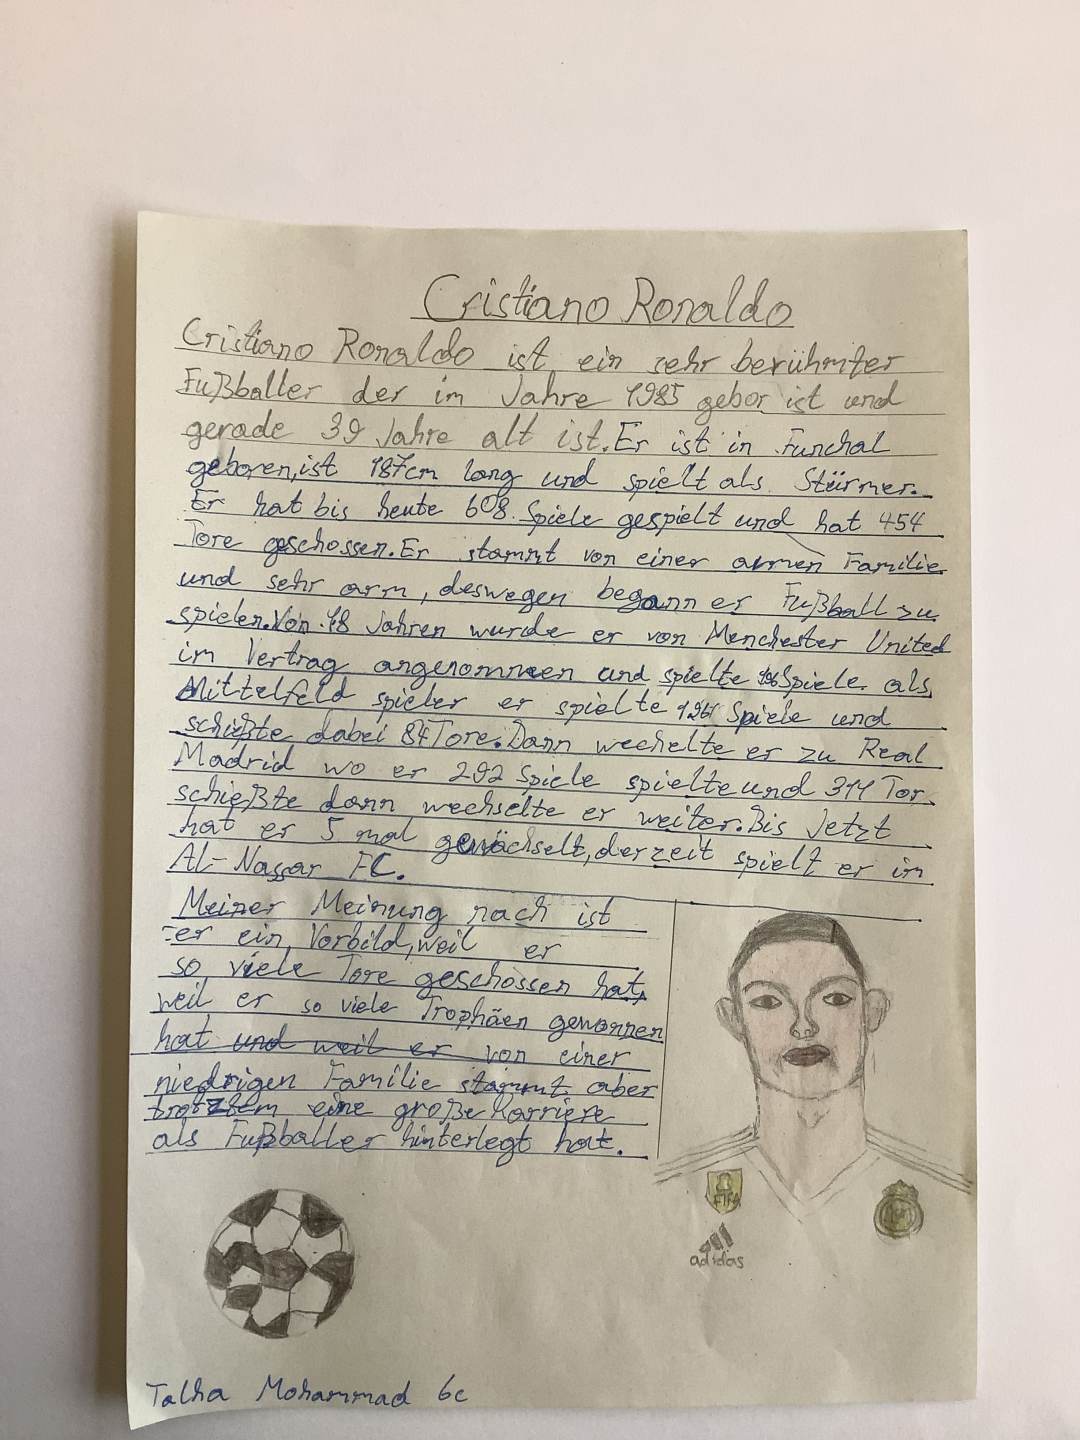 Cristiano Ronaldo
Cristiano Ronaldo ist ein sehr berühmter
Fußballer der im Jahre 1985 gebor ist und
gerade 39 Jahre alt ist. Er ist in Funchal
geboren, ist 187cm lang und spielt als Stürmer.
Er hat bis heute 608 Spiele gespielt und hat 454
Tore geschossen. Er stammt von einer armen Familie
und sehr arm, deswegen begann er Fußball zu
spielen. Von 18 Jahren wurde er von Menchester United
im Vertrag angenommen und spielte 196 Spiele als
Mittelfeld spieler er spielte Spiele und
schießte dabei 84 Tore. Dann wechelte er zu Real
Madrid wo er 292 Spiele spielte und 311 Tor
schießte dann wechselte er weiter. Bis Jetzt
hat er 5 mal gewächselt, derzeit spielt er in
Al-Nassar FC.
Meiner Meinung nach ist
er ein Vorbild, weil er
so viele Tore geschossen hat,
weil er so viele Trophäen gewonnen
hat und weil er von einer
niedrigen Familie stammt aber
trotzdem eine große Karriere
als Fußballer hinterlegt hat.
FIFA
adidas
Talha Mohammad 6c